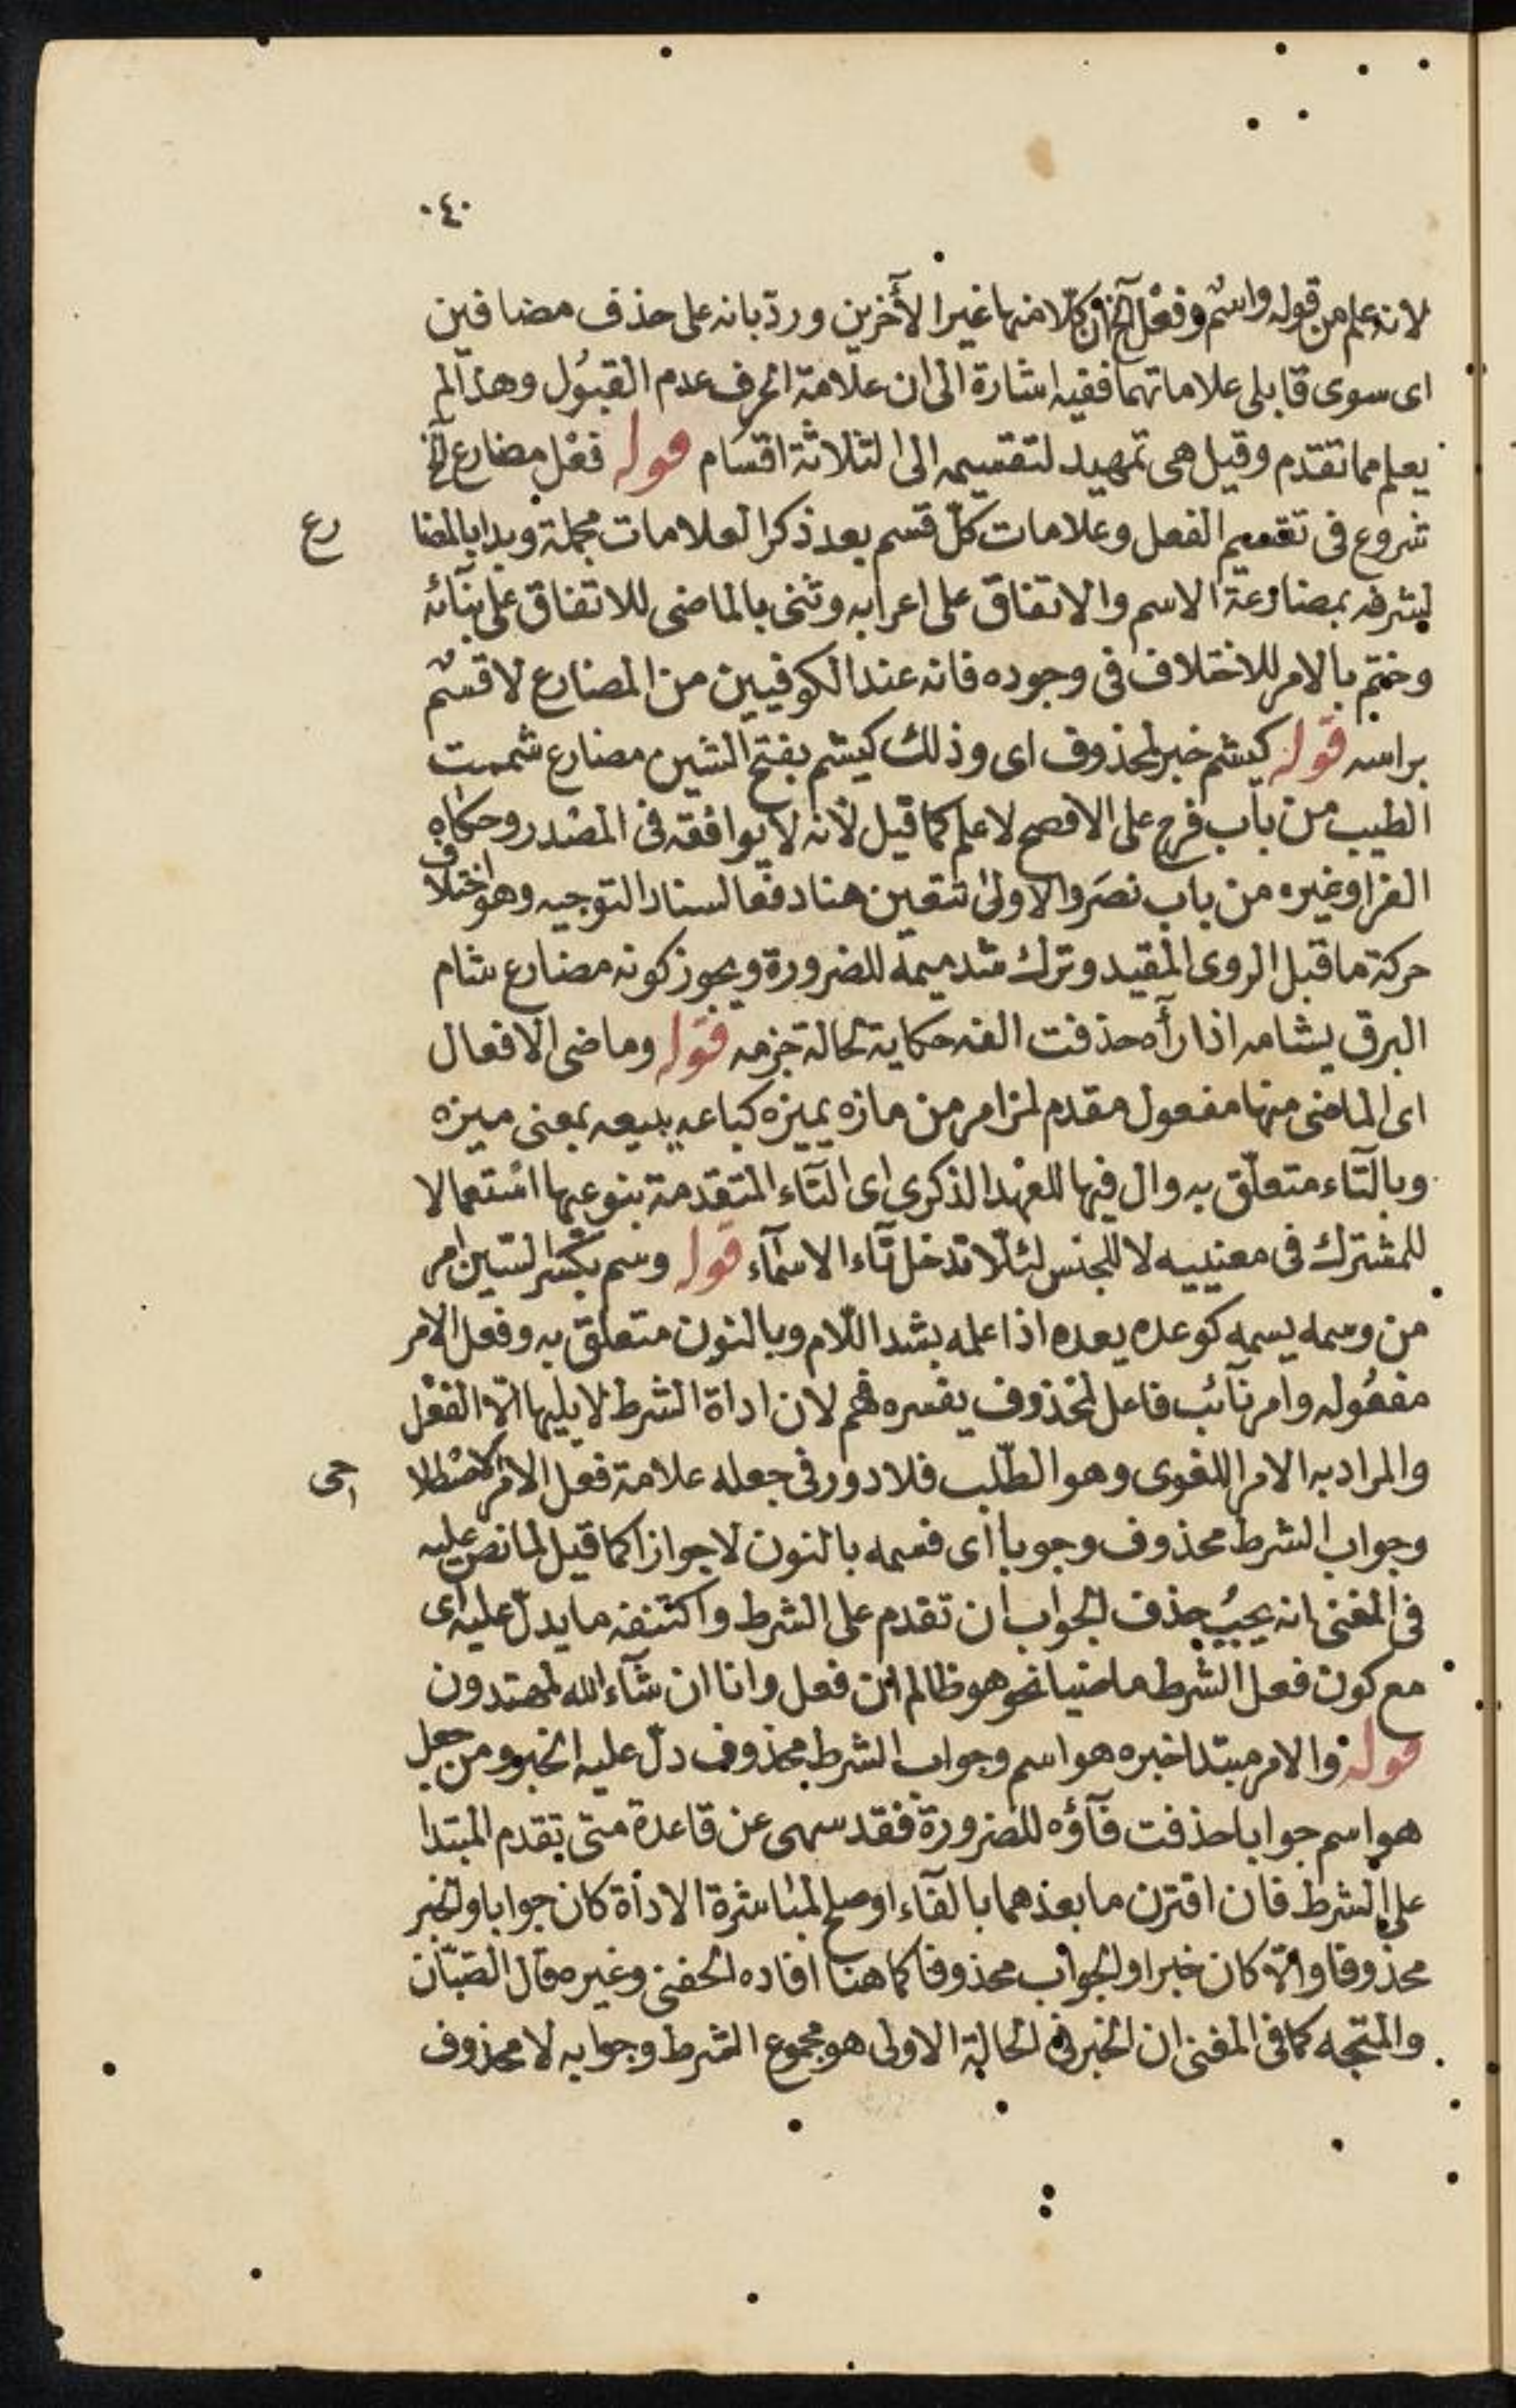 ٠٤٠
لانه علم من قوله واسم وفعل الخ ان كلّا منها غير الأخرين وردّ بانه على حذف مضافين
اى سوى قابلى علاماتهما ففيه اشارة الى ان علامة الحرف عدم القبُول وهذا لم
يعلم مما تقدم وقيل هى تمهيد لتقسيمه الى الثلاثة اقسام قوله فعْل مضارع الخ
شروع فى تقسيم الفعل وعلامات كلّ قسم بعد ذكر العلامات مجملة وبدا بالمضا رع
لشرفه بمضارعة الاسم والاتفاق على اعرابه وثنى بالماضى للاتفاق على بنآئه
وختم بالامر للاختلاف فى وجوده فانه عند الكوفيين من المضارع لا قسم
براسه قوله كيشم خبر لمحذوف اى وذلك كيشم بفتح الشين مضارع شممت
الطيب من باب فرح على الافصح لا علم كما قيل لأنه لا يوافقه فى المصْدر وحكاه
الفرا وغيره من باب نصَر والاولى تتعين هنا دفعا لسناد التوجيه وهو اختلاف
حركة ما قبل الروى المقيد وترك شد ميمه للضرورة ويجوز كونه مضارع شام
البرق يشامه اذا رأه حذفت الفه حكاية لحالة جزمه قوله وماضى الافعال
اى الماضى منها مفعول مقدم لمز امر من مازه يميزه كباعه يبيعه بمعنى ميزه
وبالتّاء متعلّق به وال فيها للعهْد الذكرى اى التاء المتقدمة بنوعيها استعمالا
للمشترك فى معنييه لا للجنس لئلّا تدخل تاء الاسمآء قوله وسم بكسر السّين امر
من وسمه يسمه كوعده يعده اذا علمه بشد اللّام وبالنون متعلق به وفعل الامر
مفعُوله وامر نآئب فاعل لمحذوف يفسره فهم لان اداة الشرط لا يليها الّا الفعْل
والمراد به الامر اللغوى وهو الطّلب فلا دور فى جعله علامة فعل الامر الاصْطلا احى
وجواب الشرط محذوف وجوبا اى فسمه بالنون لا جوازا كما قيل لما نص عليه
فى المغنى انه يجبُ حذف الجواب ان تقدم على الشرط واكتنفه ما يدلّ عليه اى
مع كون فعل الشرط ماضيا نحو هو ظالم ان فعل وانا ان شآء الله لمهتدون
قوله والامر مبتدا خبره هو اسم وجواب الشرط محذوف دلّ عليه الخبر ومن جعل
هو اسم جوابا حذفت فآؤه للضرورة فقد سهى عن قاعدة متى تقدم المبتدا
على الشرط فان اقترن ما بعدهما بالفآء او صلح لمباشرة الاداة كان جوابا والخبر
محذوفا والّا كان خبرا والجواب محذوفا كما هنا افاده الحفنى وغيره قال الصّبّان
والمتجه كما فى المغنى ان الخبر فى الحالة الاولى هو مجموع الشرط وجوابه لا محذوف